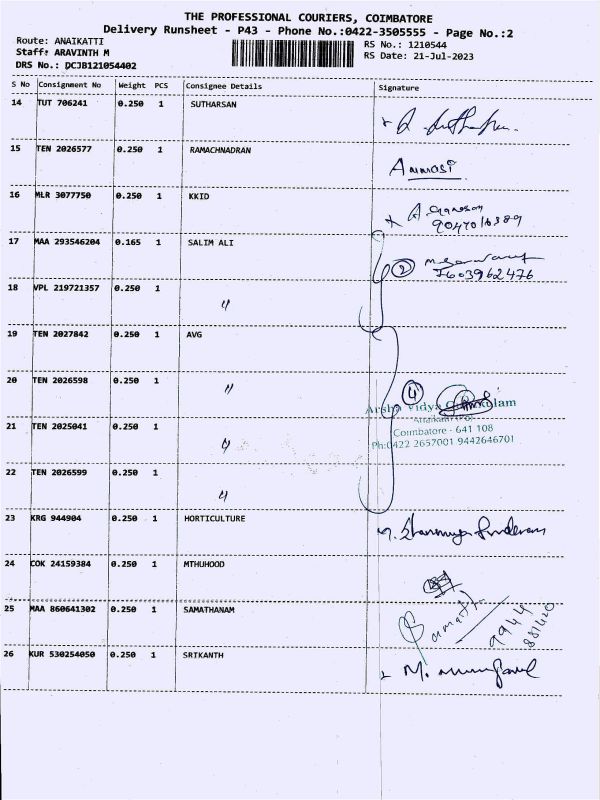 THE PROFESSIONAL COURIERS, COIMBATORE
Delivery Runsheet - P43 - Phone No.:0422-3505555 - Page No.:2
Route: ANAIKATTI
RS No.: 1210544
Staff: ARAVINTH M
RS Date: 21-Jul-2023
DRS No.: DCJB121054402
S No Consignment No Weight PCS Consignee Details Signature
14 TUT 706241 0.250 1 SUTHARSAN
15 TEN 2026577 0.250 1 RAMACHNADRAN
Ammasi
16 MLR 3077750 0.250 1 KKID
A. Ganesan
9047016389
17 MAA 293546204 0.165 1 SALIM ALI
2
7603962476
18 VPL 219721357 0.250 1 〃
19 TEN 2027842 0.250 1 AVG
20 TEN 2026598 0.250 1 〃
4
Arsha Vidya Gurukulam
Coimbatore - 641 108
Ph:0422 2657001 9442646701
21 TEN 2025041 0.250 1 〃
22 TEN 2026599 0.250 1 〃
23 KRG 944904 0.250 1 HORTICULTURE
24 COK 24159384 0.250 1 MTHUHOOD
25 MAA 860641302 0.250 1 SAMATHANAM
9944
881420
26 KUR 530254050 0.250 1 SRIKANTH